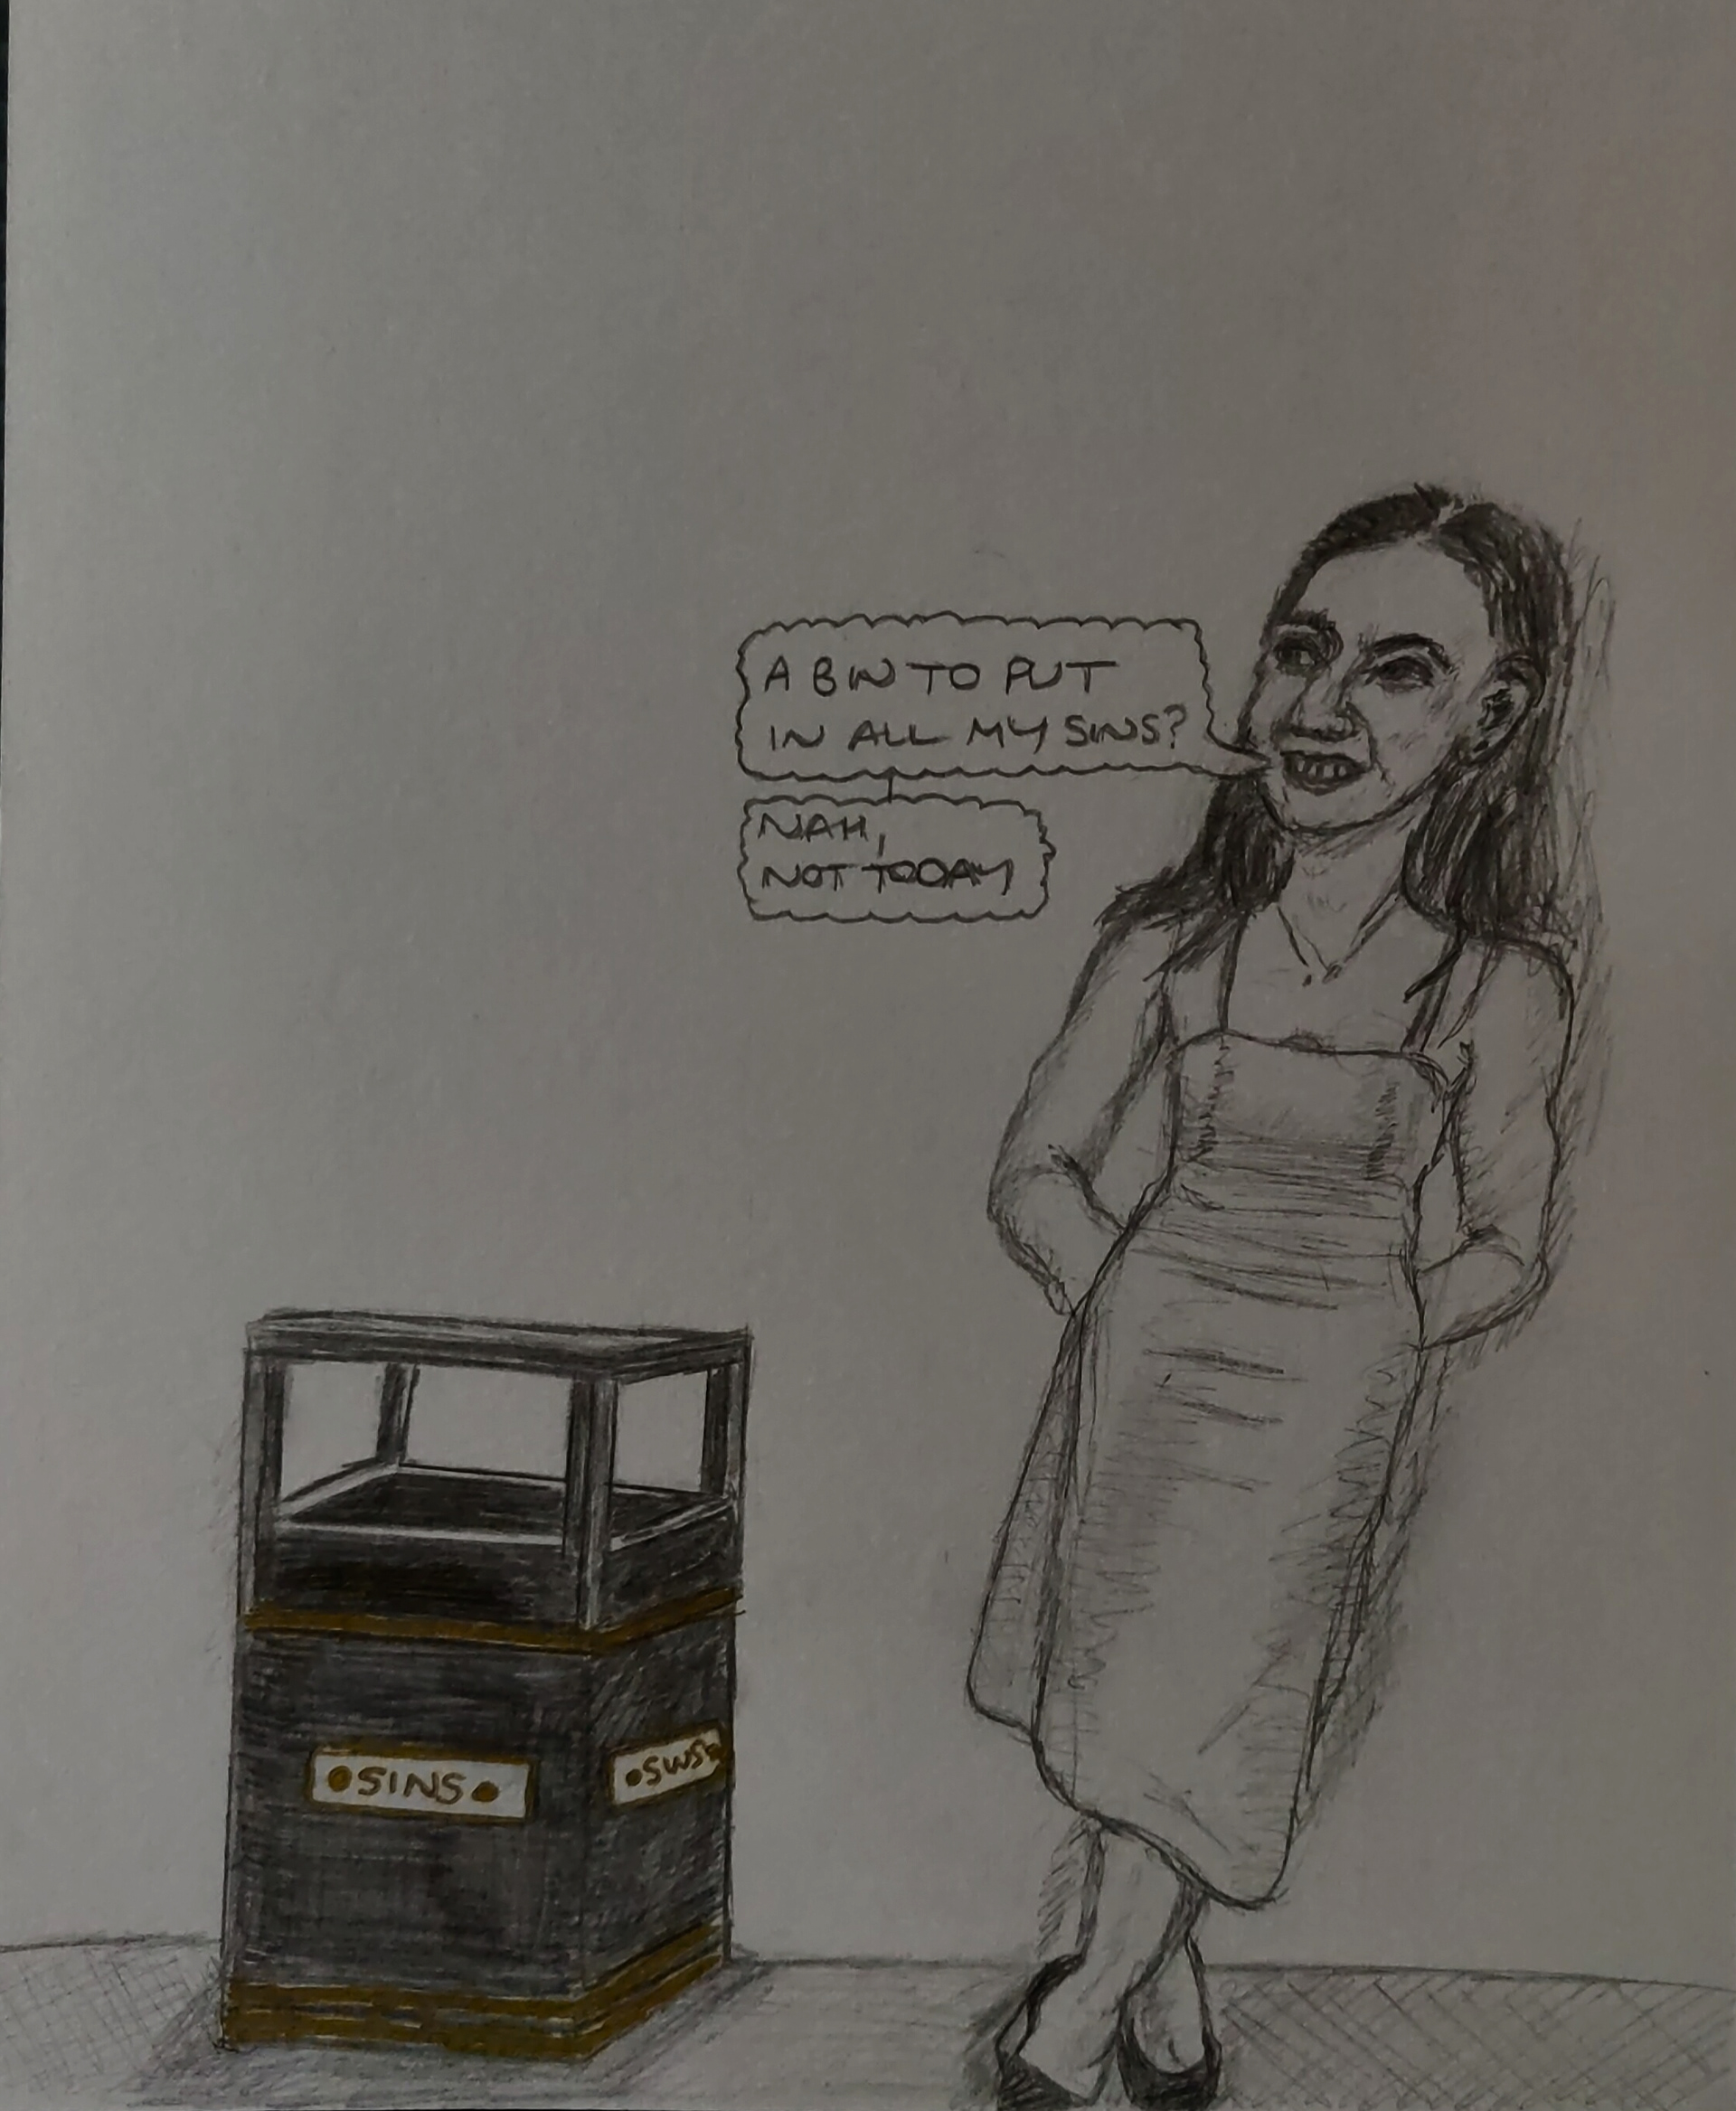 A BIN TO PUT
IN ALL MY SINS?
NAH,
NOT TODAY
•SINS•
•SINS•